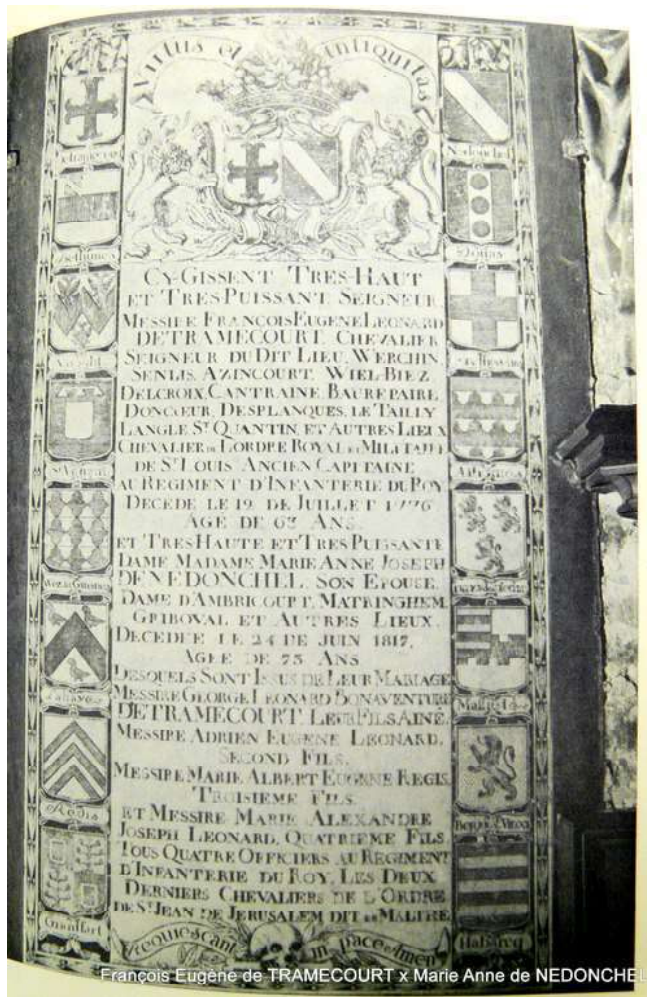 Virtus et Antiquitas
Detramecou
Nedonchel
Bethune
Douay
CY-GISSENT TRES-HAUT
ET TRES-PUISSANT SEIGNEUR
MESSIRE FRANCOIS EUGENE LEONARD
DETRAMECOURT, CHEVALIER
SEIGNEUR DU DIT LIEU, WERCHIN
SENLIS, AZINCOURT, WIEL-BIEZ
DELCROIX, CANTRAINE, BAUREPAIRE
DONCŒUR, DESPLANQUES, LE TAILLY
LANGLE ST QUANTIN, ET AUTRES LIEUX
CHEVALIER DE LORDRE ROYAL ET MILITAIRE
DE ST LOUIS ANCIEN CAPITAINE
AU REGIMENT D'INFANTERIE DU ROY
DECEDE LE 19 DE JUILLET 1776
AGE DE 67 ANS.
ET TRES HAUTE ET TRES PUISSANTE
DAME MADAME MARIE ANNE JOSEPH
DE NEDONCHEL, SON EPOUSE,
DAME D'AMBRICOURT, MATRINGHEM,
GRIBOVAL ET AUTRES LIEUX.
DECEDEE LE 24 DE JUIN 1817,
AGEE DE 75 ANS
DESQUELS SONT ISSUS DE LEUR MARIAGE
MESSIRE GEORGE LEONARD BONAVENTURE
DETRAMECOURT, LEUR FILS AINE,
MESSIRE ADRIEN EUGENE LEONARD,
SECOND FILS,
MESSIRE MARIE ALBERT EUGENE REGIS,
TROISIEME FILS
ET MESSIRE MARIE ALEXANDRE
JOSEPH LEONARD, QUATRIEME FILS
TOUS QUATRE OFFICIERS AU REGIMENT
D'INFANTERIE DU ROY, LES DEUX
DERNIERS CHEVALIERS DE L'ORDRE
DE ST JEAN DE JERUSALEM DIT DE MALTHE
Habarcq
requiescant in pace Amen
François Eugène de TRAMECOURT x Marie Anne de NEDONCHEL